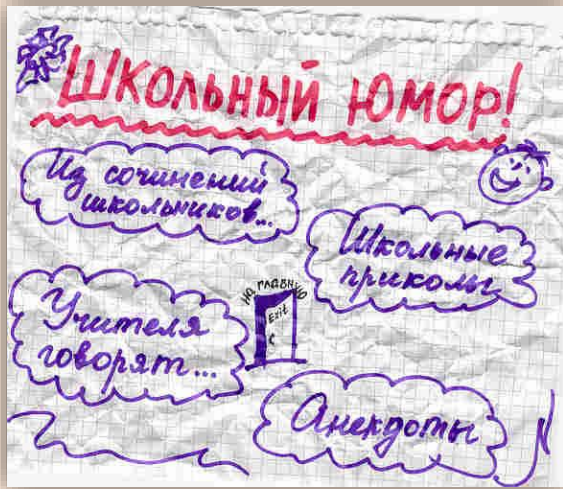 Школьный юмор!
Из сочинений
школьников...
Школьные
приколы
На главную
Exit
Учителя
говорят...
Анекдоты